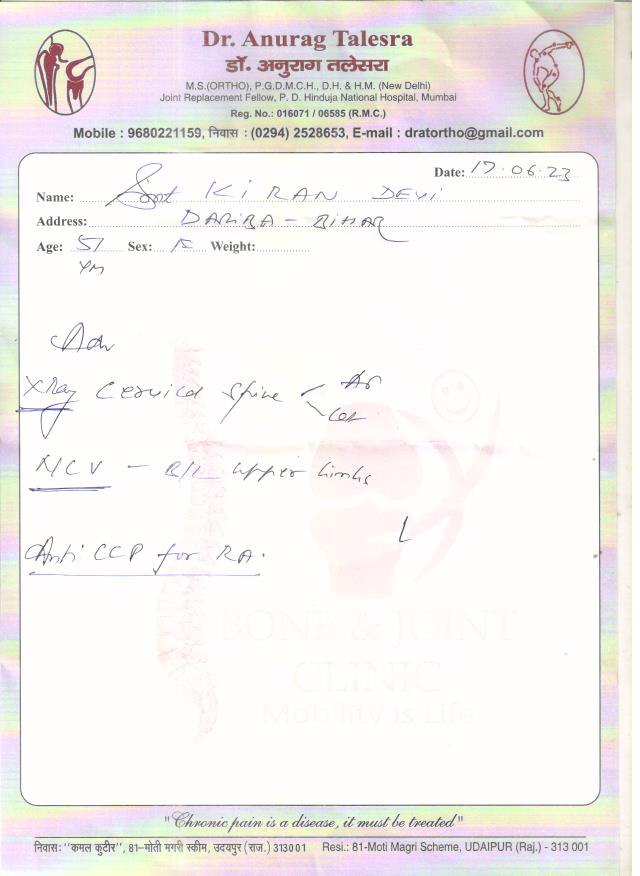 Dr. Anurag Talesra
डॉ. अनुराग तलेसरा
M.S.(ORTHO), P.G.D.M.C.H., D.H. & H.M. (New Delhi)
Joint Replacement Fellow, P. D. Hinduja National Hospital, Mumbai
Reg. No.: 016071 / 06585 (R.M.C.)
Mobile : 9680221159, निवास : (0294) 2528653, E-mail : dratortho@gmail.com
Date: 17.06.23
Name: Smt KIRAN DEVI
Address: DARIBA - BIHAR
Age: 51 Sex: F Weight:
Adv
X Ray Cervical Spine < AP
Lat
NCV - B/L upper limbs
Anti CCP for RA.
BONE & JOINT
CLINIC
Mobility is Life
"Chronic pain is a disease, it must be treated"
निवास: "कमल कुटीर", 81-मोती मगरी स्कीम, उदयपुर (राज.) 313001 Resi.: 81-Moti Magri Scheme, UDAIPUR (Raj.) - 313 001